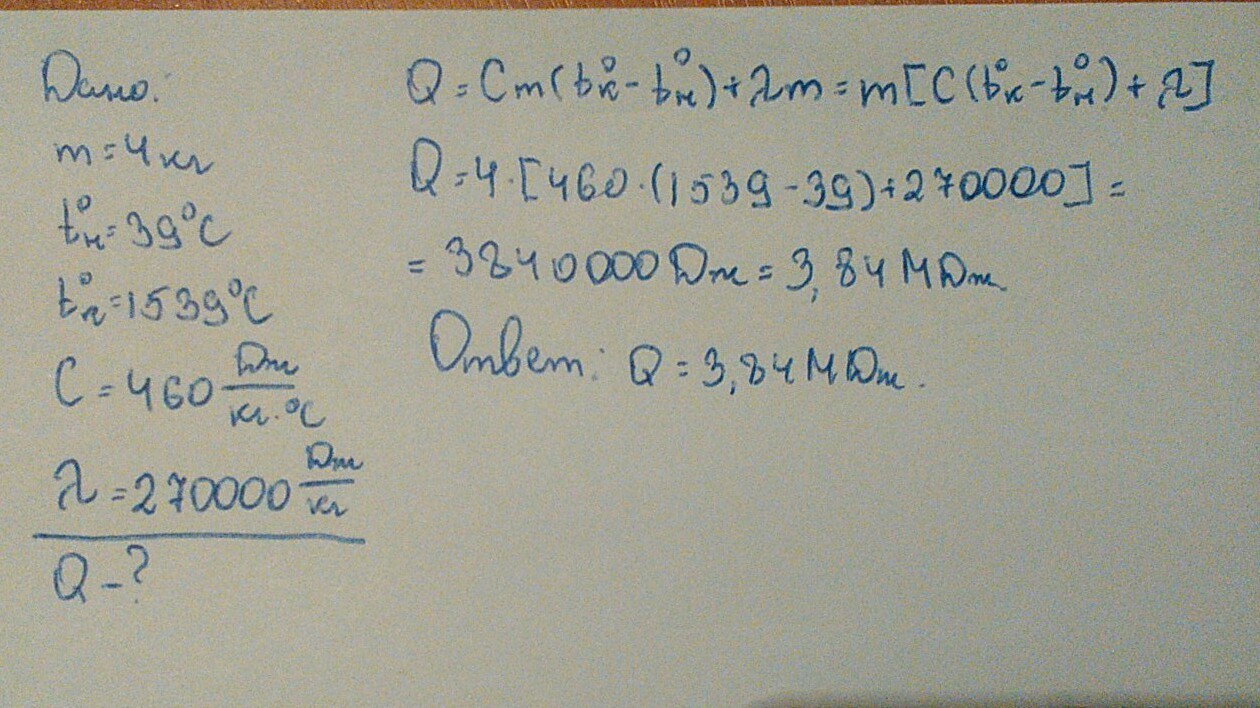 Дано:
m=4кг
t°н=39°C
t°к=1539°C
C=460 Дж/кг·°C
λ=270000 Дж/кг
Q-?
Q=Cm(t°к-t°н)+λm=m[C(t°к-t°н)+λ]
Q=4·[460·(1539-39)+270000]=
=3840000Дж=3,84МДж
Ответ: Q=3,84МДж.